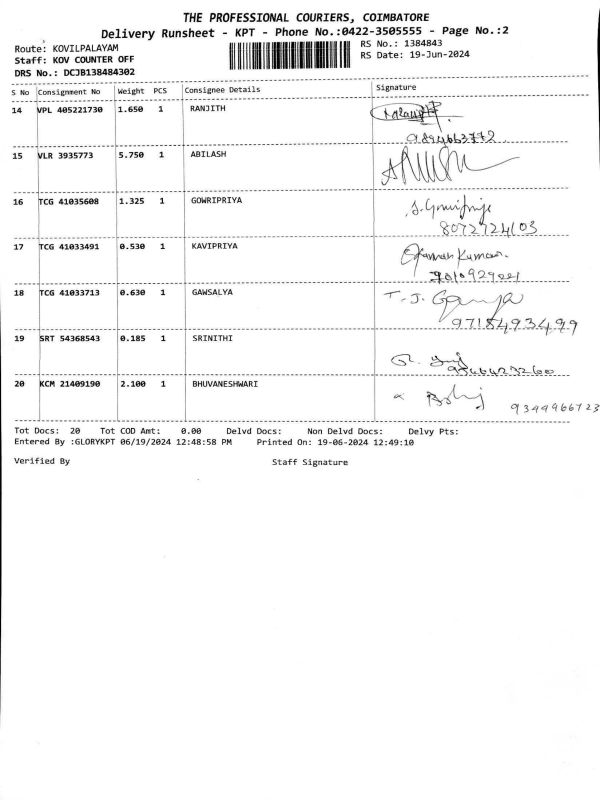 THE PROFESSIONAL COURIERS, COIMBATORE
Delivery Runsheet - KPT - Phone No.:0422-3505555 - Page No.:2
Route: KOVILPALAYAM
RS No.: 1384843
Staff: KOV COUNTER OFF
RS Date: 19-Jun-2024
DRS No.: DCJB138484302
S No Consignment No Weight PCS Consignee Details Signature
14 VPL 405221730 1.650 1 RANJITH
9894663772
15 VLR 3935773 5.750 1 ABILASH
16 TCG 41035608 1.325 1 GOWRIPRIYA
8072724103
17 TCG 41033491 0.530 1 KAVIPRIYA
Kumar
18 TCG 41033713 0.630 1 GAWSALYA
T. J.
9718493499
19 SRT 54368543 0.185 1 SRINITHI
20 KCM 21409190 2.100 1 BHUVANESHWARI
9344966723
Tot Docs: 20 Tot COD Amt: 0.00 Delvd Docs: Non Delvd Docs: Delvy Pts:
Entered By :GLORYKPT 06/19/2024 12:48:58 PM Printed On: 19-06-2024 12:49:10
Verified By Staff Signature